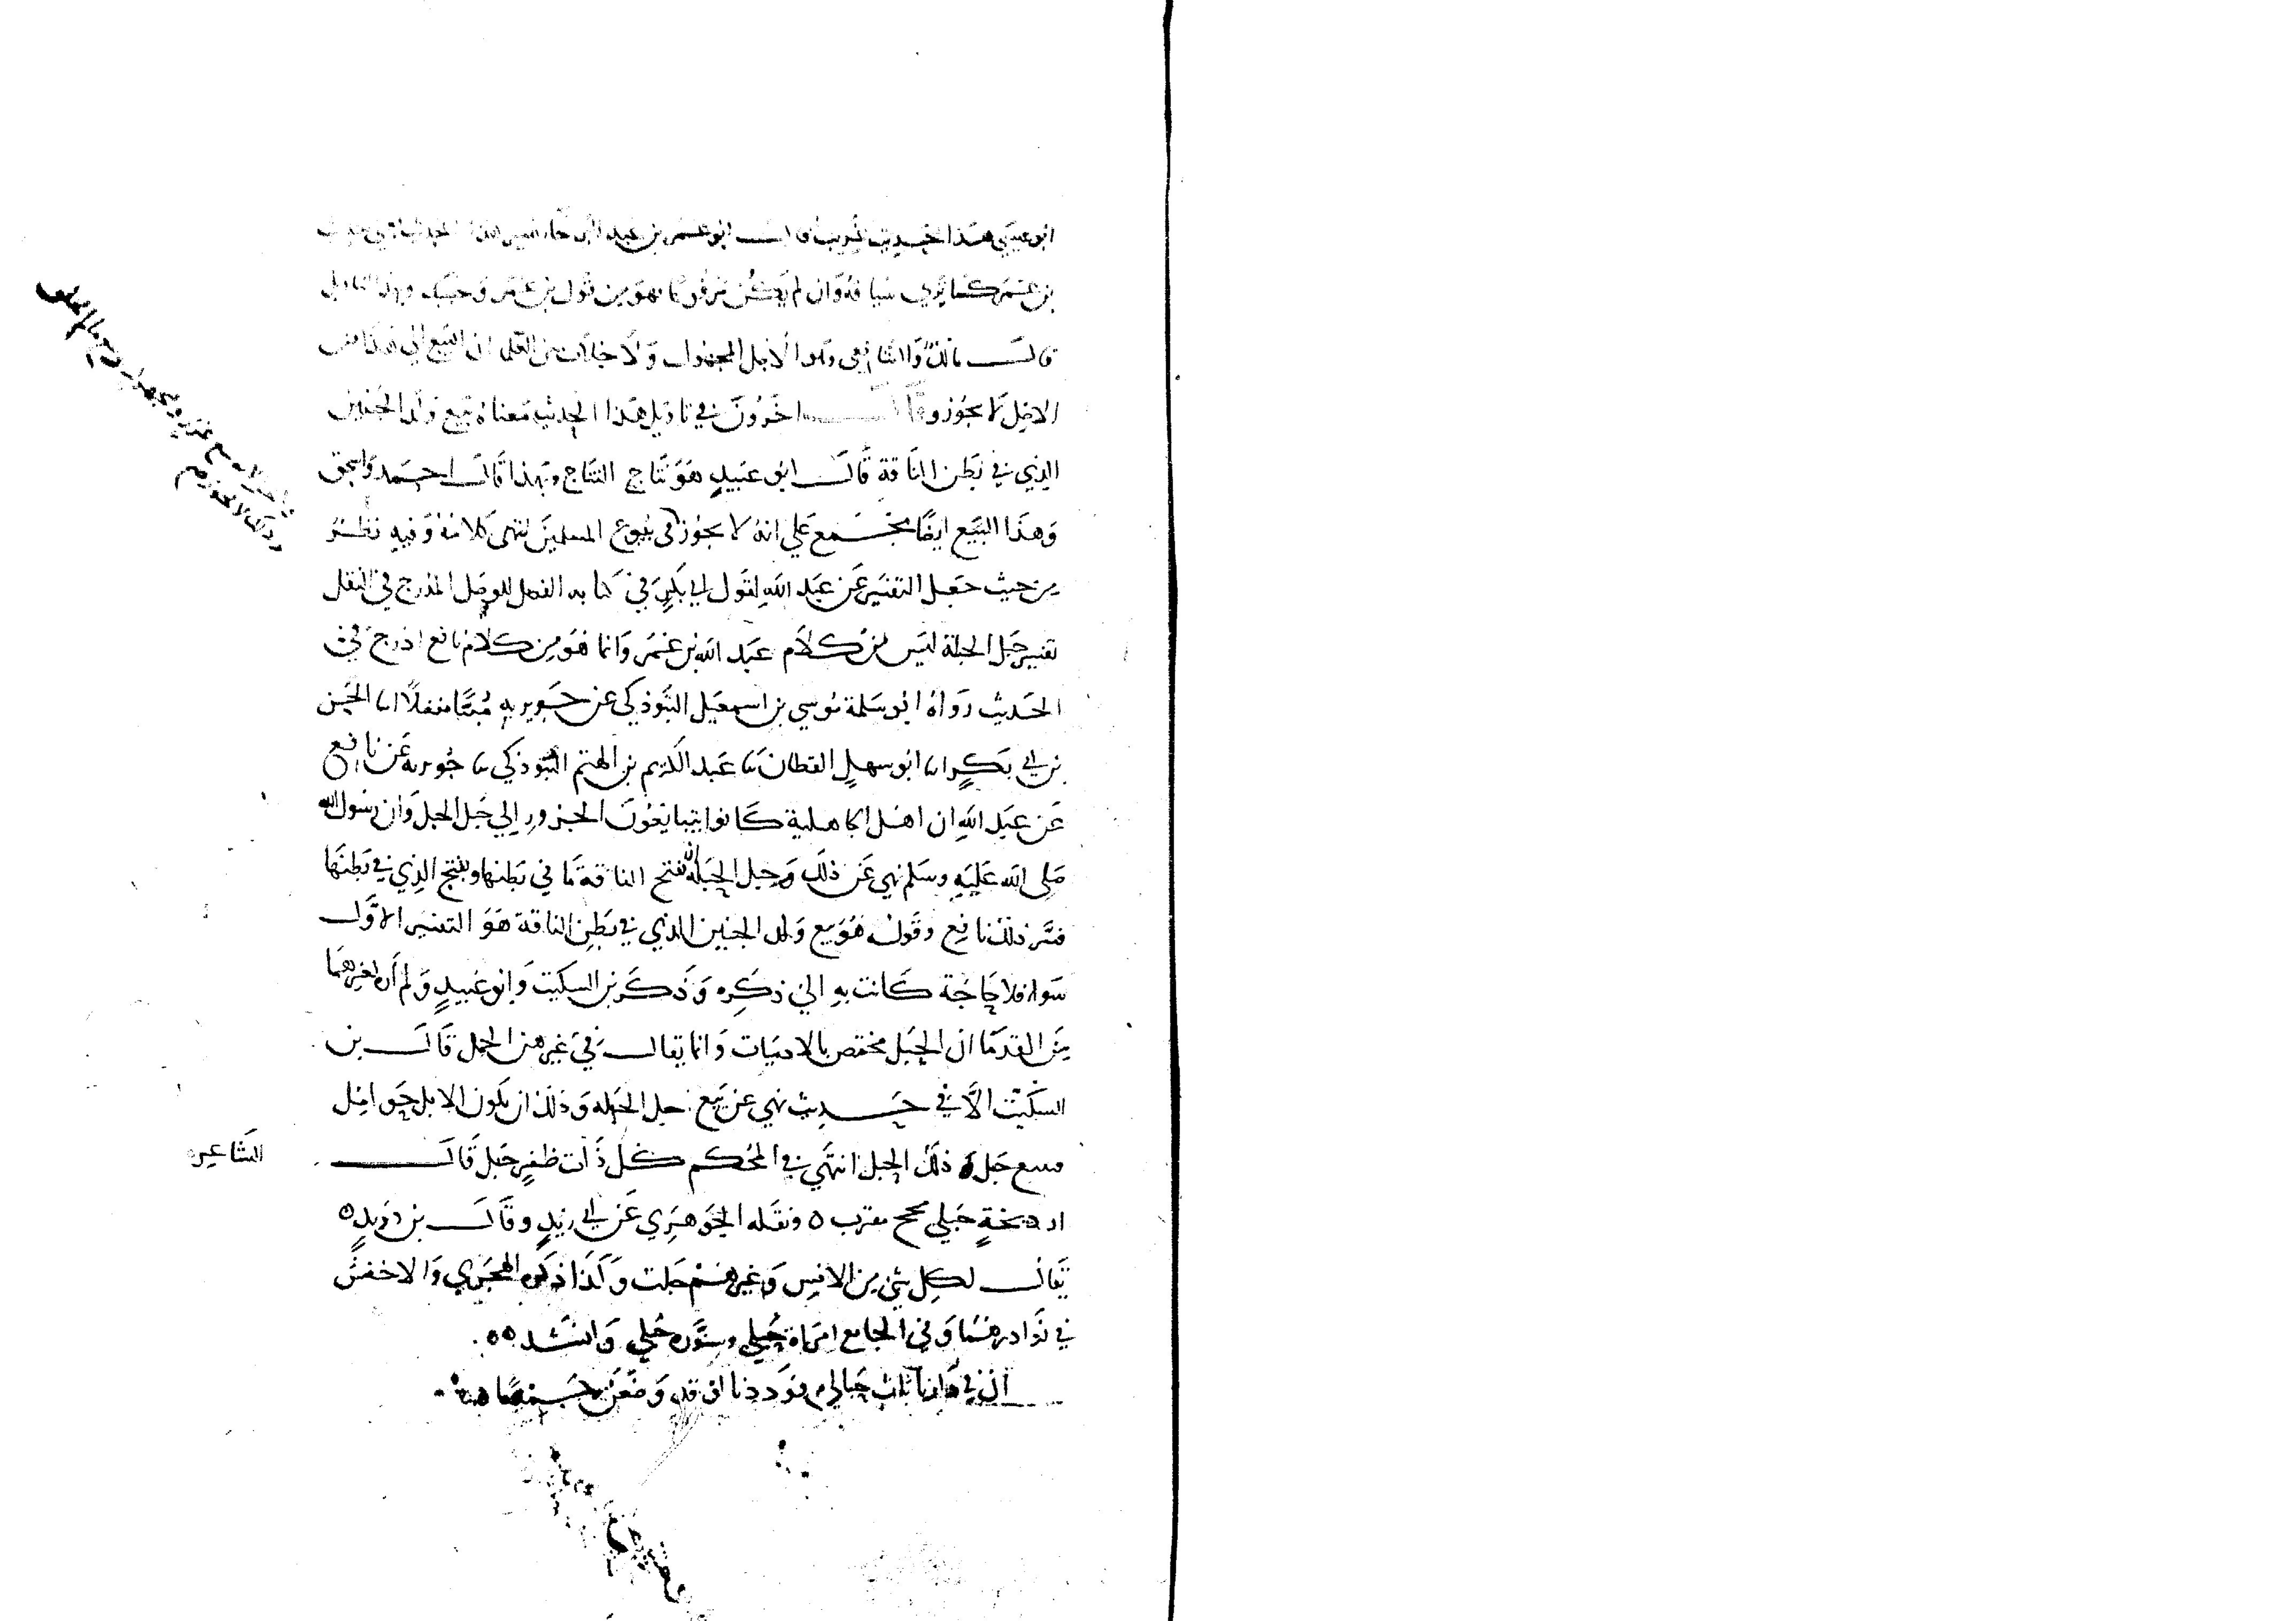 ابو عيسي هذا حديث غريب قال ابو عمر بن عبد البر جاء تفسير هذا الحديث في حديث
بن عمر كما تري سياقه وان لم يكن مرفوعا فهو من قول بن عمر وحسبك وبهذا التاويل
قال مالك والشافعي وهو الاجل المجهول ولا خلاف بين العلما ان البيع الي هذا من
الاجل لا يجوز وقال اخرون في تاويل هذا الحديث معناه بيع ولد الجنين
الذي في بطن الناقة قال ابو عبيد هو نتاج النتاج وبهذا قال احمد واسحق
وهذا البيع ايضا مجتمع علي انه لا يجوز في بيوع المسلمين انتهي كلامه وفيه نظر
من حيث جعل التفسير عن عبد الله لقول ابي بكر في كتابه الفصل للوصل المدرج في النقل
تفسير حبل الحبلة ليس من كلام عبد الله بن عمر وانما هو من كلام نافع ادرج في
الحديث رواه ابو سلمة موسي بن اسمعيل التبوذكي عن جويريه مبينا مفصلا انا الحسن
بن ابي بكر انا ابو سهل القطان ثنا عبد الكريم بن الهيثم ثنا التبوذكي ثنا جويريه عن نافع
عن عبد الله ان اهل الجاهلية كانوا يتبايعون الجزور الي حبل الحبلة وان رسول الله
صلي الله عليه وسلم نهي عن ذلك وحبل الحبلة ان تنتج الناقة ما في بطنها وينتج الذي في بطنها
فسر ذلك نافع وقوله هو بيع ولد الجنين الذي في بطن الناقة هو التفسير الاول
سواء فلا حاجة كانت به الي ذكره وذكر بن السكيت وابو عبيد ولم اره لغيرهما
من القدما ان الحبل مختص بالادميات وانما يقال في غيرهن الحمل قال بن
السكيت الا في حديث نهي عن بيع حبل الحبله وذلك ان يكون الابل حوامل
فبيع حبل ذلك الحبل انتهي في المحكم كل ذات ظفر حبلي قال
الشاعر ه
او ذيخة حبلي مجح مقرب ه ونقله الجوهري عن ابي زيد وقال بن دريد ه
يقال لكل شي من الانس وغيرهم حبلت وكذا ذكره الهجري والاخفش
في نوادرهما وفي الجامع امراة حبلي وسنورة حبلي وانشد ه ه
ان في دارنا ثلاث حبالي فوددنا ان قد وضعن جميعا